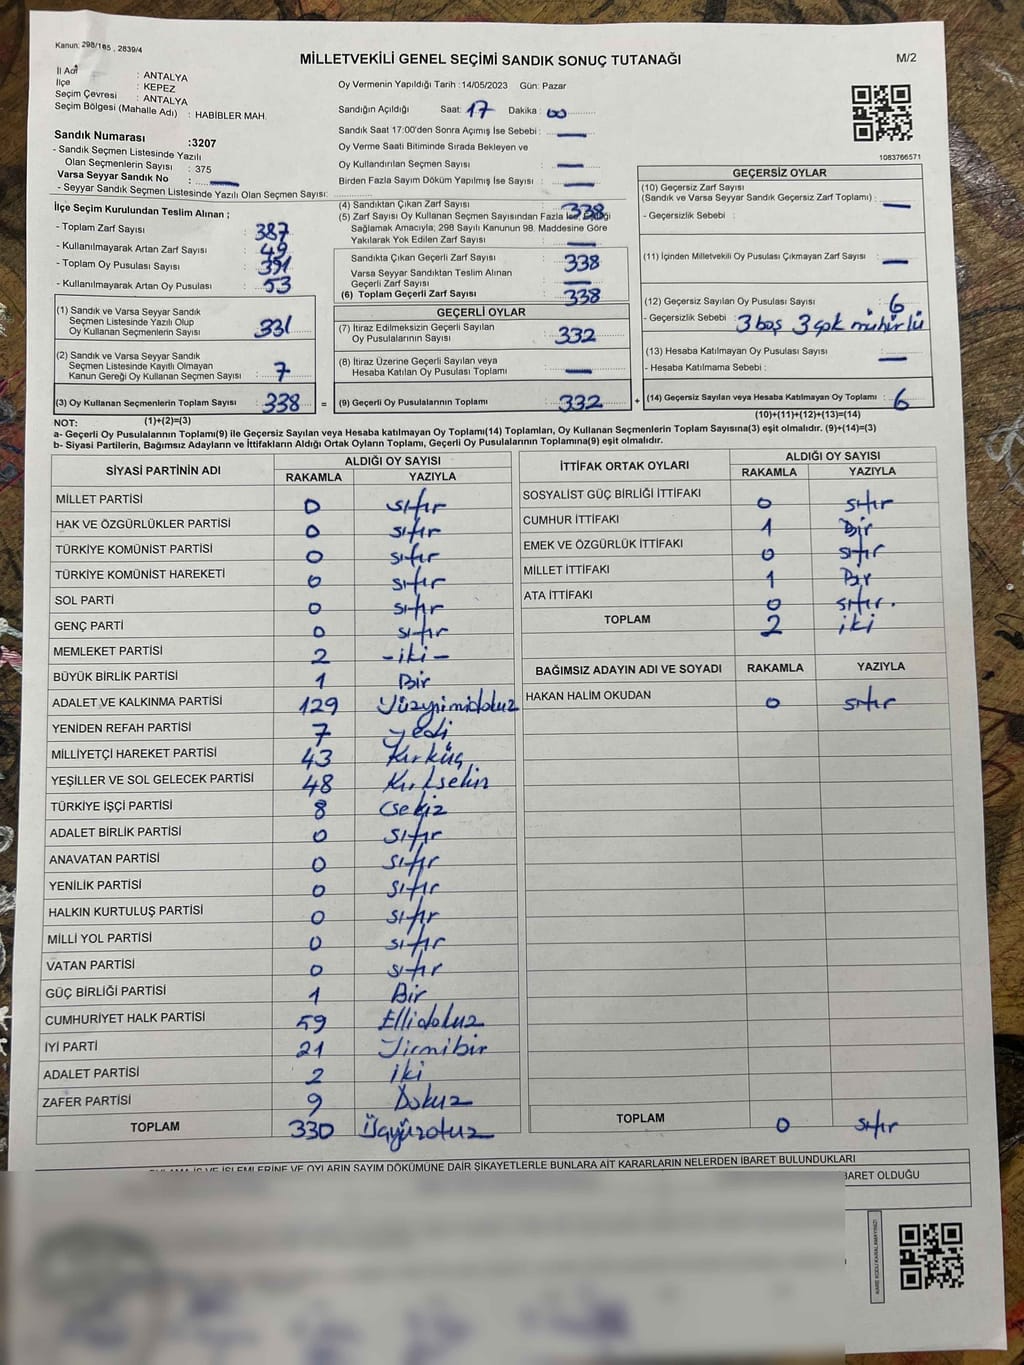 Kanun: 298/105 , 2839/4
MİLLETVEKİLİ GENEL SEÇİMİ SANDIK SONUÇ TUTANAĞI
M/2
İl Adı : ANTALYA
İlçe : KEPEZ
Seçim Çevresi : ANTALYA
Seçim Bölgesi (Mahalle Adı) : HABİBLER MAH.
Sandık Numarası :3207
- Sandık Seçmen Listesinde Yazılı
Olan Seçmenlerin Sayısı : 375
Varsa Seyyar Sandık No :
- Seyyar Sandık Seçmen Listesinde Yazılı Olan Seçmen Sayısı:
Oy Vermenin Yapıldığı Tarih :14/05/2023 Gün: Pazar
Sandığın Açıldığı Saat: 17 Dakika : 00
Sandık Saat 17:00'den Sonra Açılmış İse Sebebi : —
Oy Verme Saati Bitiminde Sırada Bekleyen ve
Oy Kullandırılan Seçmen Sayısı : —
Birden Fazla Sayım Döküm Yapılmış İse Sayısı : —
1083766571
İlçe Seçim Kurulundan Teslim Alınan ;
- Toplam Zarf Sayısı : 387
- Kullanılmayarak Artan Zarf Sayısı : 49
- Toplam Oy Pusulası Sayısı : 391
- Kullanılmayarak Artan Oy Pusulası : 53
(1) Sandık ve Varsa Seyyar Sandık
Seçmen Listesinde Yazılı Olup
Oy Kullanan Seçmenlerin Sayısı : 331
(2) Sandık ve Varsa Seyyar Sandık
Seçmen Listesinde Kayıtlı Olmayan
Kanun Gereği Oy Kullanan Seçmen Sayısı : 7
(3) Oy Kullanan Seçmenlerin Toplam Sayısı : 338 =
(1)+(2)=(3)
(4) Sandıktan Çıkan Zarf Sayısı : 338
(5) Zarf Sayısı Oy Kullanan Seçmen Sayısından Fazla İse, Eşitliği
Sağlamak Amacıyla; 298 Sayılı Kanunun 98. Maddesine Göre
Yakılarak Yok Edilen Zarf Sayısı : —
Sandıkta Çıkan Geçerli Zarf Sayısı : 338
Varsa Seyyar Sandıktan Teslim Alınan
Geçerli Zarf Sayısı : —
(6) Toplam Geçerli Zarf Sayısı : 338
GEÇERLİ OYLAR
(7) İtiraz Edilmeksizin Geçerli Sayılan
Oy Pusulalarının Sayısı : 332
(8) İtiraz Üzerine Geçerli Sayılan veya
Hesaba Katılan Oy Pusulası Toplamı : —
(9) Geçerli Oy Pusulalarının Toplamı : 332 +
GEÇERSİZ OYLAR
(10) Geçersiz Zarf Sayısı
(Sandık ve Varsa Seyyar Sandık Geçersiz Zarf Toplamı) : —
- Geçersizlik Sebebi :
(11) İçinden Milletvekili Oy Pusulası Çıkmayan Zarf Sayısı : —
(12) Geçersiz Sayılan Oy Pusulası Sayısı : 6
- Geçersizlik Sebebi : 3 boş 3 çok mühürlü
(13) Hesaba Katılmayan Oy Pusulası Sayısı : —
- Hesaba Katılmama Sebebi :
(14) Geçersiz Sayılan veya Hesaba Katılmayan Oy Toplamı : 6
(10)+(11)+(12)+(13)=(14)
NOT:
a- Geçerli Oy Pusulalarının Toplamı(9) ile Geçersiz Sayılan veya Hesaba Katılmayan Oy Toplamı(14) Toplamları, Oy Kullanan Seçmenlerin Toplam Sayısına(3) eşit olmalıdır. (9)+(14)=(3)
b- Siyasi Partilerin, Bağımsız Adayların ve İttifakların Aldığı Ortak Oyların Toplamı, Geçerli Oy Pusulalarının Toplamına(9) eşit olmalıdır.
SİYASİ PARTİNİN ADI ALDIĞI OY SAYISI
RAKAMLA YAZIYLA
MİLLET PARTİSİ 0 sıfır
HAK VE ÖZGÜRLÜKLER PARTİSİ 0 sıfır
TÜRKİYE KOMÜNİST PARTİSİ 0 sıfır
TÜRKİYE KOMÜNİST HAREKETİ 0 sıfır
SOL PARTİ 0 sıfır
GENÇ PARTİ 0 sıfır
MEMLEKET PARTİSİ 2 -iki-
BÜYÜK BİRLİK PARTİSİ 1 Bir
ADALET VE KALKINMA PARTİSİ 129 Yüzyirmidokuz
YENİDEN REFAH PARTİSİ 7 yedi
MİLLİYETÇİ HAREKET PARTİSİ 43 Kırküç
YEŞİLLER VE SOL GELECEK PARTİSİ 48 Kırksekiz
TÜRKİYE İŞÇİ PARTİSİ 8 sekiz
ADALET BİRLİK PARTİSİ 0 sıfır
ANAVATAN PARTİSİ 0 sıfır
YENİLİK PARTİSİ 0 sıfır
HALKIN KURTULUŞ PARTİSİ 0 sıfır
MİLLİ YOL PARTİSİ 0 sıfır
VATAN PARTİSİ 0 sıfır
GÜÇ BİRLİĞİ PARTİSİ 1 Bir
CUMHURİYET HALK PARTİSİ 59 Ellidokuz
İYİ PARTİ 21 Yirmibir
ADALET PARTİSİ 2 iki
ZAFER PARTİSİ 9 Dokuz
TOPLAM 330 Üçyüzotuz
İTTİFAK ORTAK OYLARI ALDIĞI OY SAYISI
RAKAMLA YAZIYLA
SOSYALİST GÜÇ BİRLİĞİ İTTİFAKI 0 sıfır
CUMHUR İTTİFAKI 1 Bir
EMEK VE ÖZGÜRLÜK İTTİFAKI 0 sıfır
MİLLET İTTİFAKI 1 Bir
ATA İTTİFAKI 0 sıfır.
TOPLAM 2 iki
BAĞIMSIZ ADAYIN ADI VE SOYADI RAKAMLA YAZIYLA
HAKAN HALİM OKUDAN 0 sıfır
TOPLAM 0 sıfır
İŞ VE İŞLEMLERİNE VE OYLARIN SAYIM DÖKÜMÜNE DAİR ŞİKAYETLERLE BUNLARA AİT KARARLARIN NELERDEN İBARET BULUNDUKLARI
İBARET OLDUĞU
KARE KODU KARALAMAYINIZ!